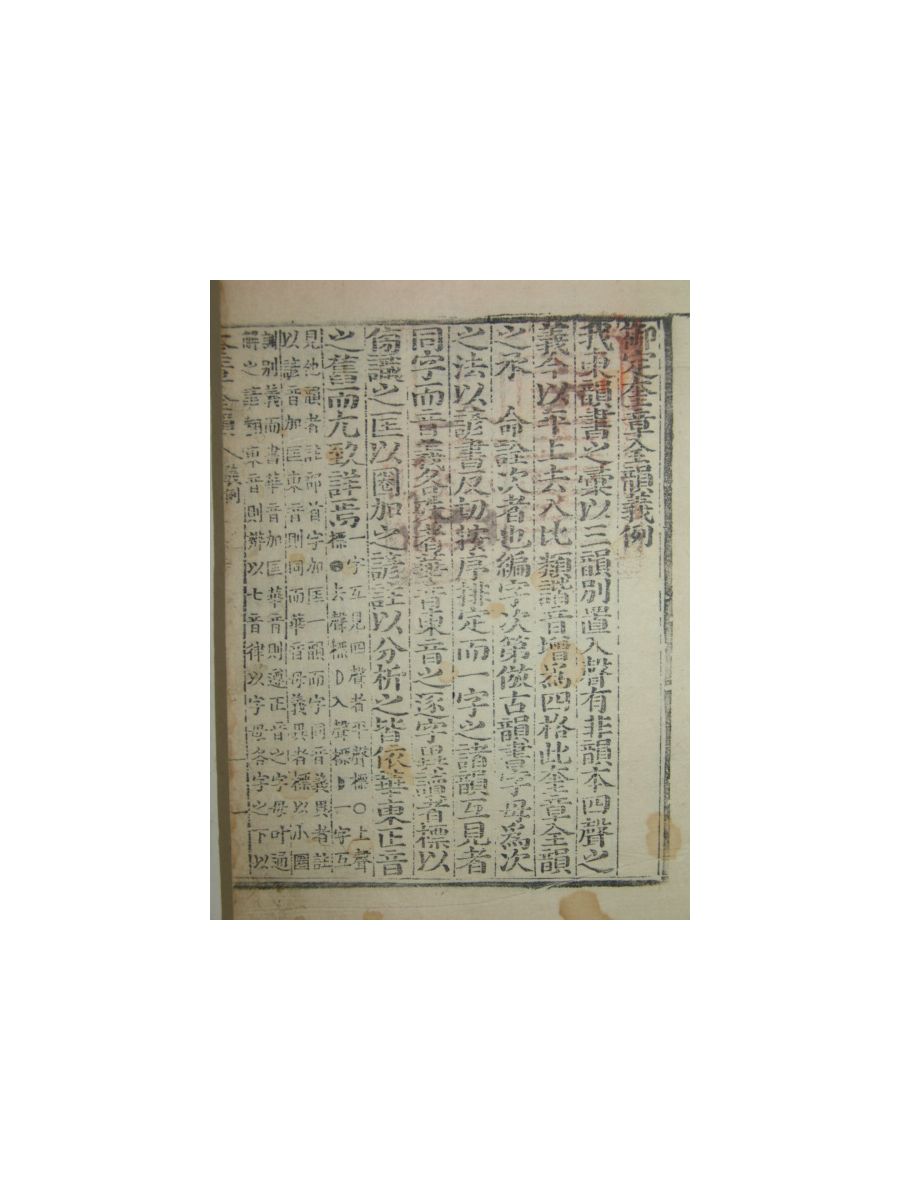 御定奎章全韻義例
我東韻書之彙以三韻別置入聲有非韻本四聲之
義今以平上去入比類諧音增爲四格此奎章全韻
之承 命詮次者也編字次第倣古韻書字母爲次
之法以諺書反切按序排定而一字之諸韻互見者
同字而音義各殊者華音東音之逐字異讀者標以
傍識之匡以圈加之諺註以分析之皆依華東正音
之舊而尢致詳焉
一字互見四聲者平聲標○上聲
標 去聲標D入聲標 一字互
見他韻者註部首字加匡一韻而字同音義異者註
以諺音加匡東音則同而華音母義異者標以小圈
別義而書華音加匡華音則遵正音之字母叶通
解之 類東音則辨以七音律以字母各字之下以
全韻 義例